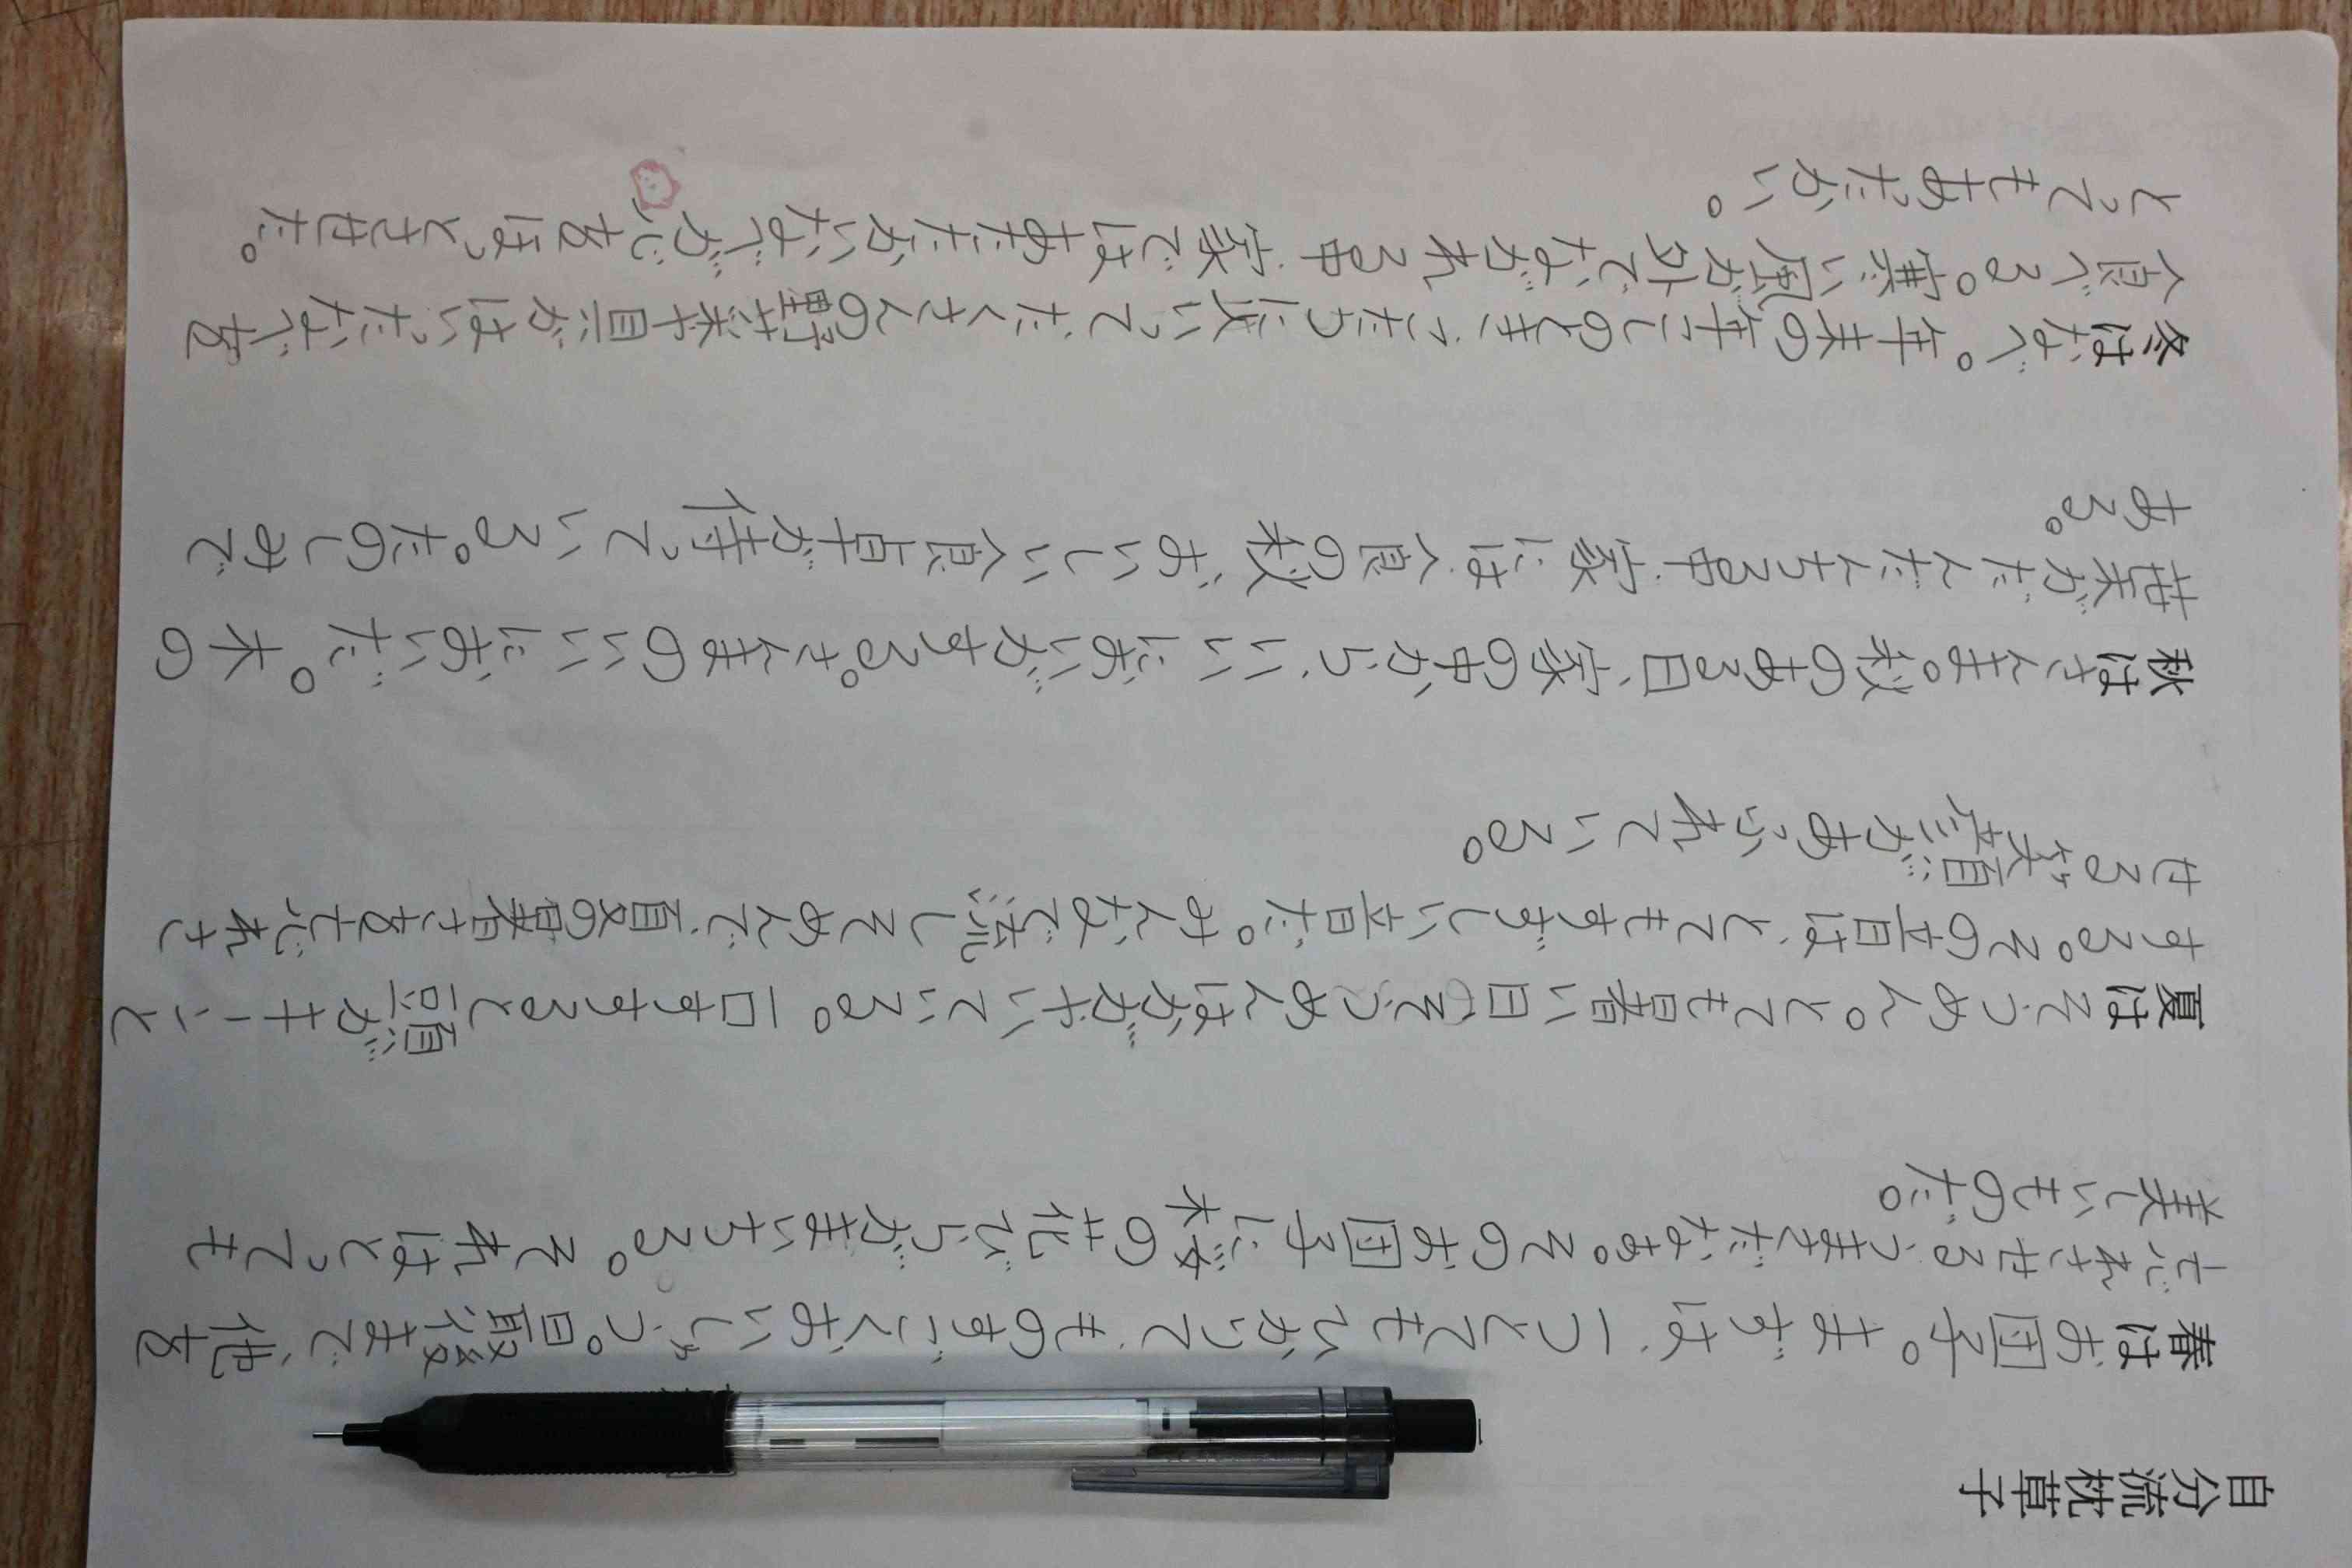 自分流枕草子
春はお団子。まずは、1つ ものすごくおいしい。 まで、他を
忘れさせる そのお団子に桜の花びらがまいちる。それはとっても
美しいものだ。
夏はそうめん。とても暑い日、そうめんはかがやいている。1口すすると 頭がキーンと
する。その は、とてもすずしい だ。みんなで流しそうめんで、夏の暑さも忘れさ
せる、笑顔があふれている。
秋はさんま。秋のある日、家の中から、いいにおいがする。さんまのいいにおいだ。木の
葉がだんだんちる中、家には、食の秋、おいしい食 が待っている。たのしみで
ある。
冬はなべ。年末の年こしのとき、 たくさんの野菜や具がはいったなべを
食べる。寒い風が外でながれる中、家ではあたたかいなべが
とてもあたたかい。